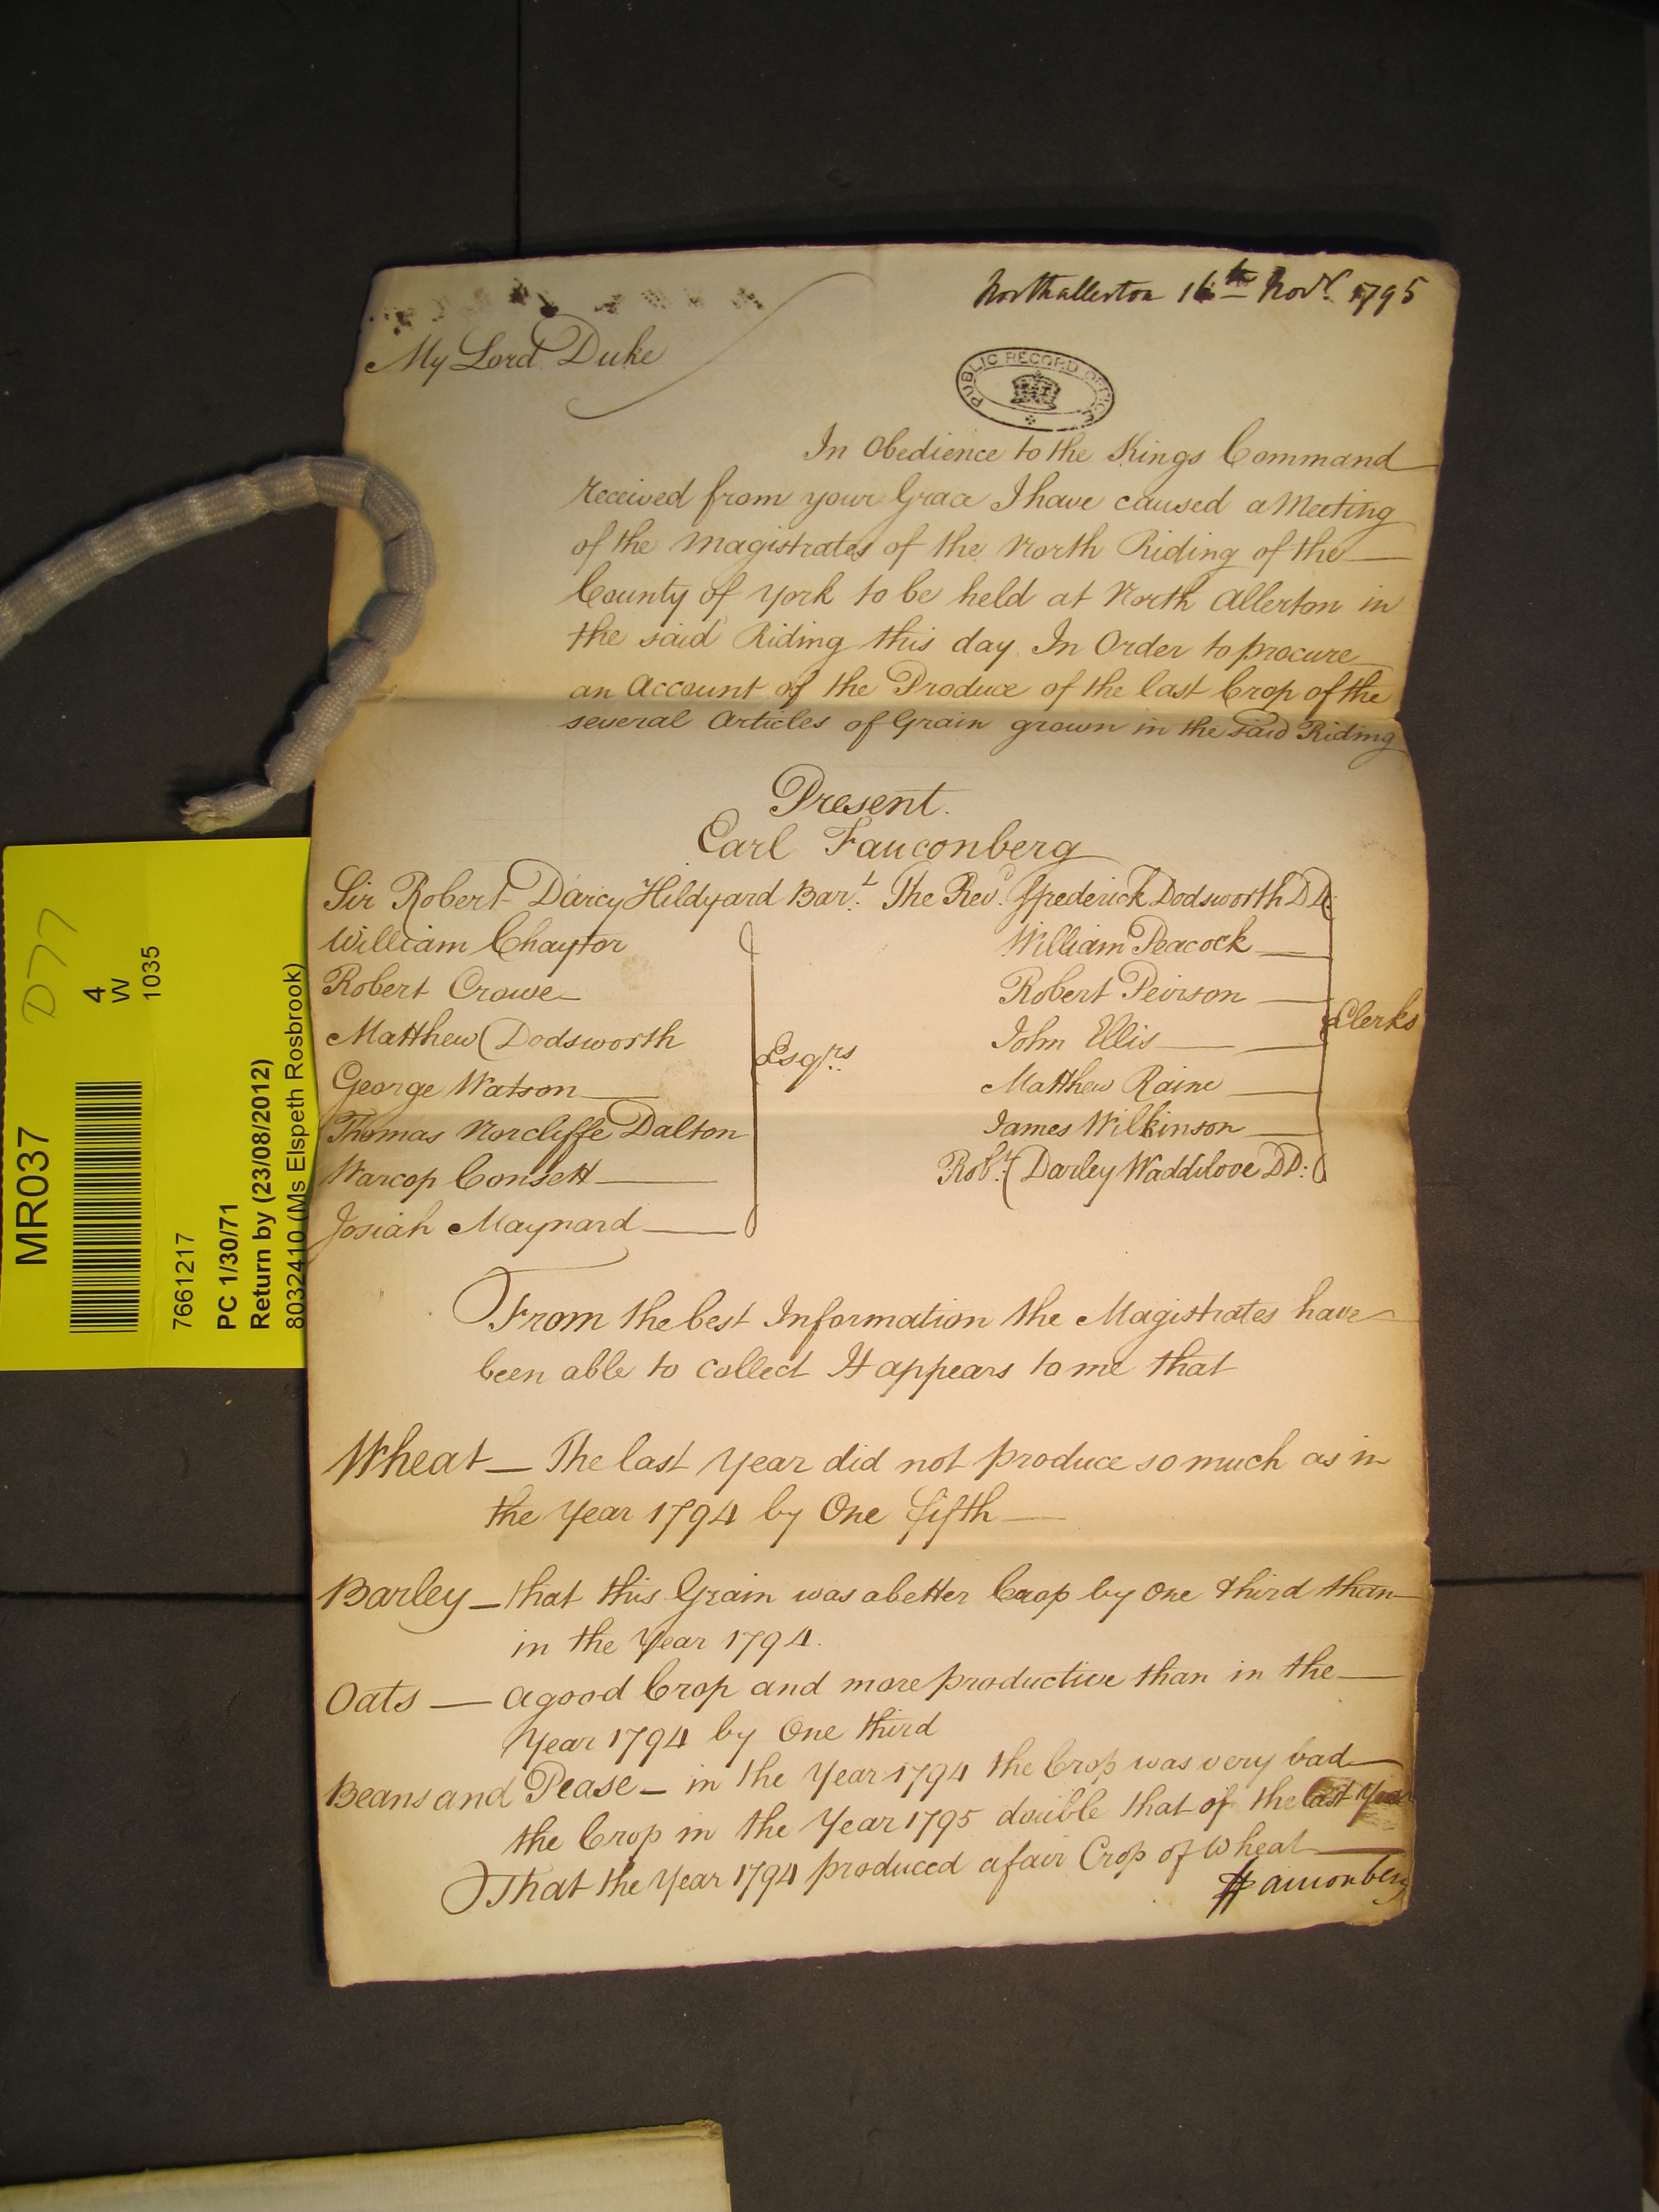 Northallerton 16th Novr. 1795
My Lord Duke
PUBLIC RECORD OFFICE
In Obedience to the Kings Command
received from your Grace I have caused a Meeting
of the Magistrates of the North Riding of the
County of York to be held at North Allerton in
the said Riding this day In Order to procure
an Account of the Produce of the last Crop of the
several Articles of Grain grown in the said Riding
Present.
Earl Fauconberg
Sir Robert Darcy Hildyard Bart. The Revd. Frederick Dodsworth DD:
William Chaytor
Robert Crowe
Matthew Dodsworth
George Watson
Thomas Norcliffe Dalton
Warcop Consett
Josiah Maynard
Esqrs.
William Peacock
Robert Peirson
John Ellis
Matthew Raine
James Wilkinson
Robt. Darley Waddilove DD:
Clerks
From the best Information the Magistrates have
been able to collect It appears to me that
Wheat — The last Year did not produce so much as in
the Year 1794 by One fifth —
Barley — that this Grain was a better Crop by One third than
in the Year 1794.
Oats — a good Crop and more productive than in the —
Year 1794 by One third
Beans and Pease — in the Year 1794 the Crop was very bad
the Crop in the Year 1795 double that of the last Year
That the Year 1794 produced a fair Crop of Wheat —
Fauconberg
D77
4
W
1035
MR037
7661217
PC 1/30/71
Return by (23/08/2012)
8032410 (Ms Elspeth Rosbrook)